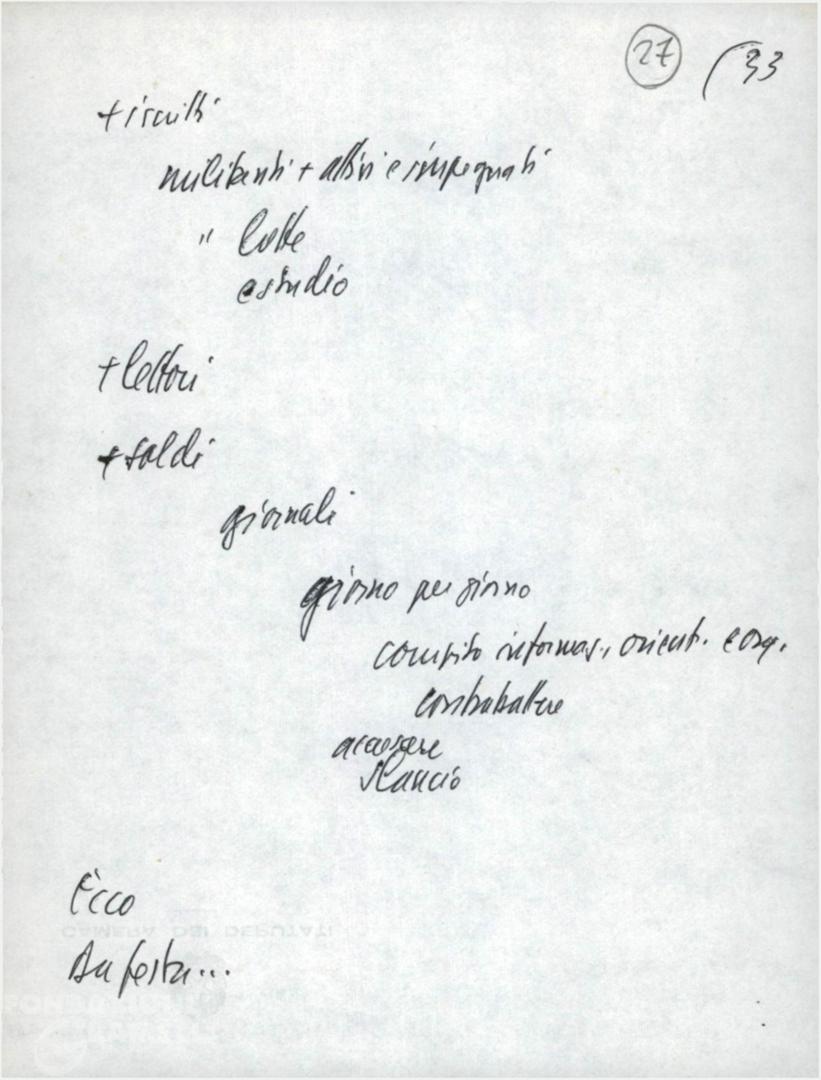 27 (33
+ iscritti
militanti + attivi e impegnati
" lotte
e studio
+ lettori
+ soldi
giornali
giorno per giorno
compito informaz., orient. e org.
controbattere
accrescere
slancio
Ecco
CAMERA DEI DEPUTATI
festa...